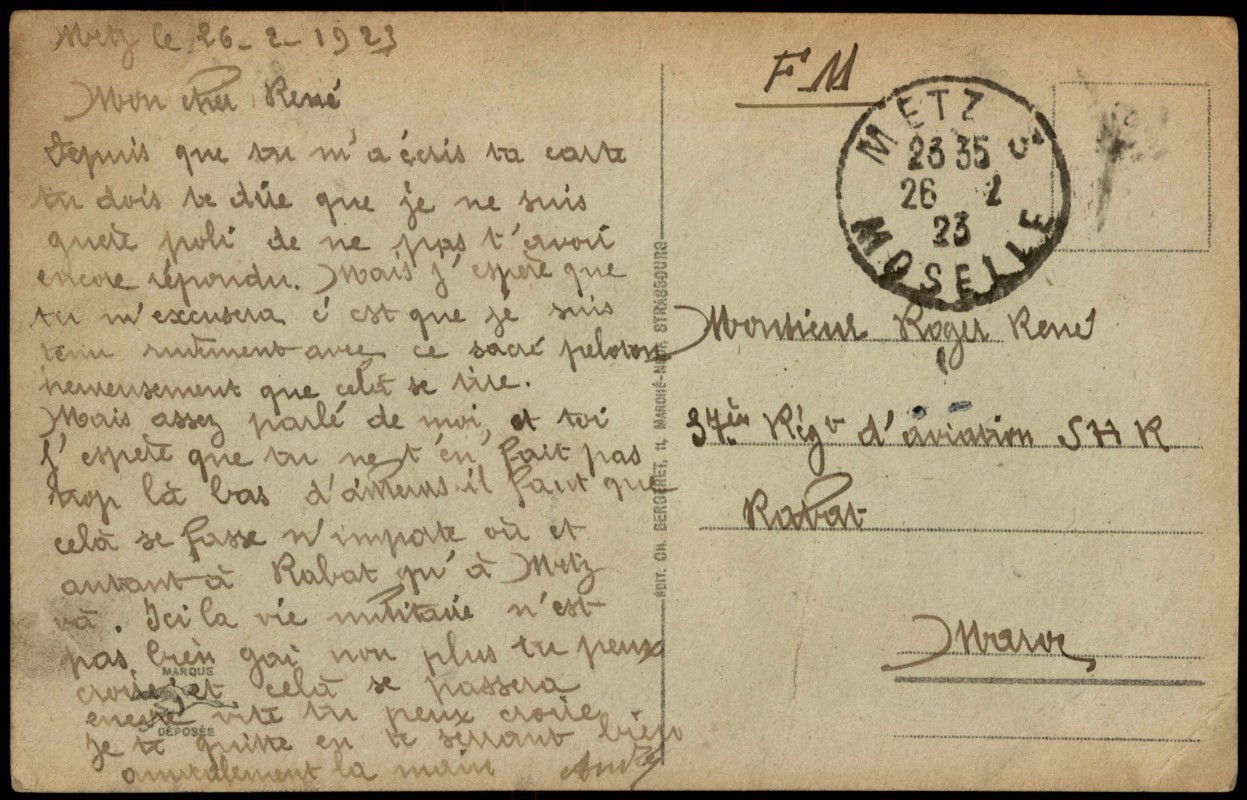 Metz le 26-2-1923
Mon cher René
Depuis que tu m'a écris ta carte
tu dois te dire que je ne suis
guère poli de ne pas t'avoir
encore répondu. Mais j'espère que
tu m'excusera c'est que je suis
tenu rudement avec ce sacré peloton
hereusement que celà se tire.
Mais assez parlé de moi, et toi
j'espère que tu ne t'en fait pas
trop là bas d'ailleurs il faut que
celà se fasse n'importe où et
autant à Rabat qu'à Metz
va. Ici la vie militaire n'est
pas bien gai non plus tu peux
croire et celà se passera
encore vite tu peux croire
je te quitte en te serrant bien
amicalement la main André
MARQUE
DÉPOSÉE
ÉDIT. CH. BERGERET, 11, MARCHÉ-NEUF STRASBOURG
FM
METZ 3
23 35
26 2
23
MOSELLE
Monsieur Roger René
37ème Régt d'aviation S H R
Rabat
Maroc